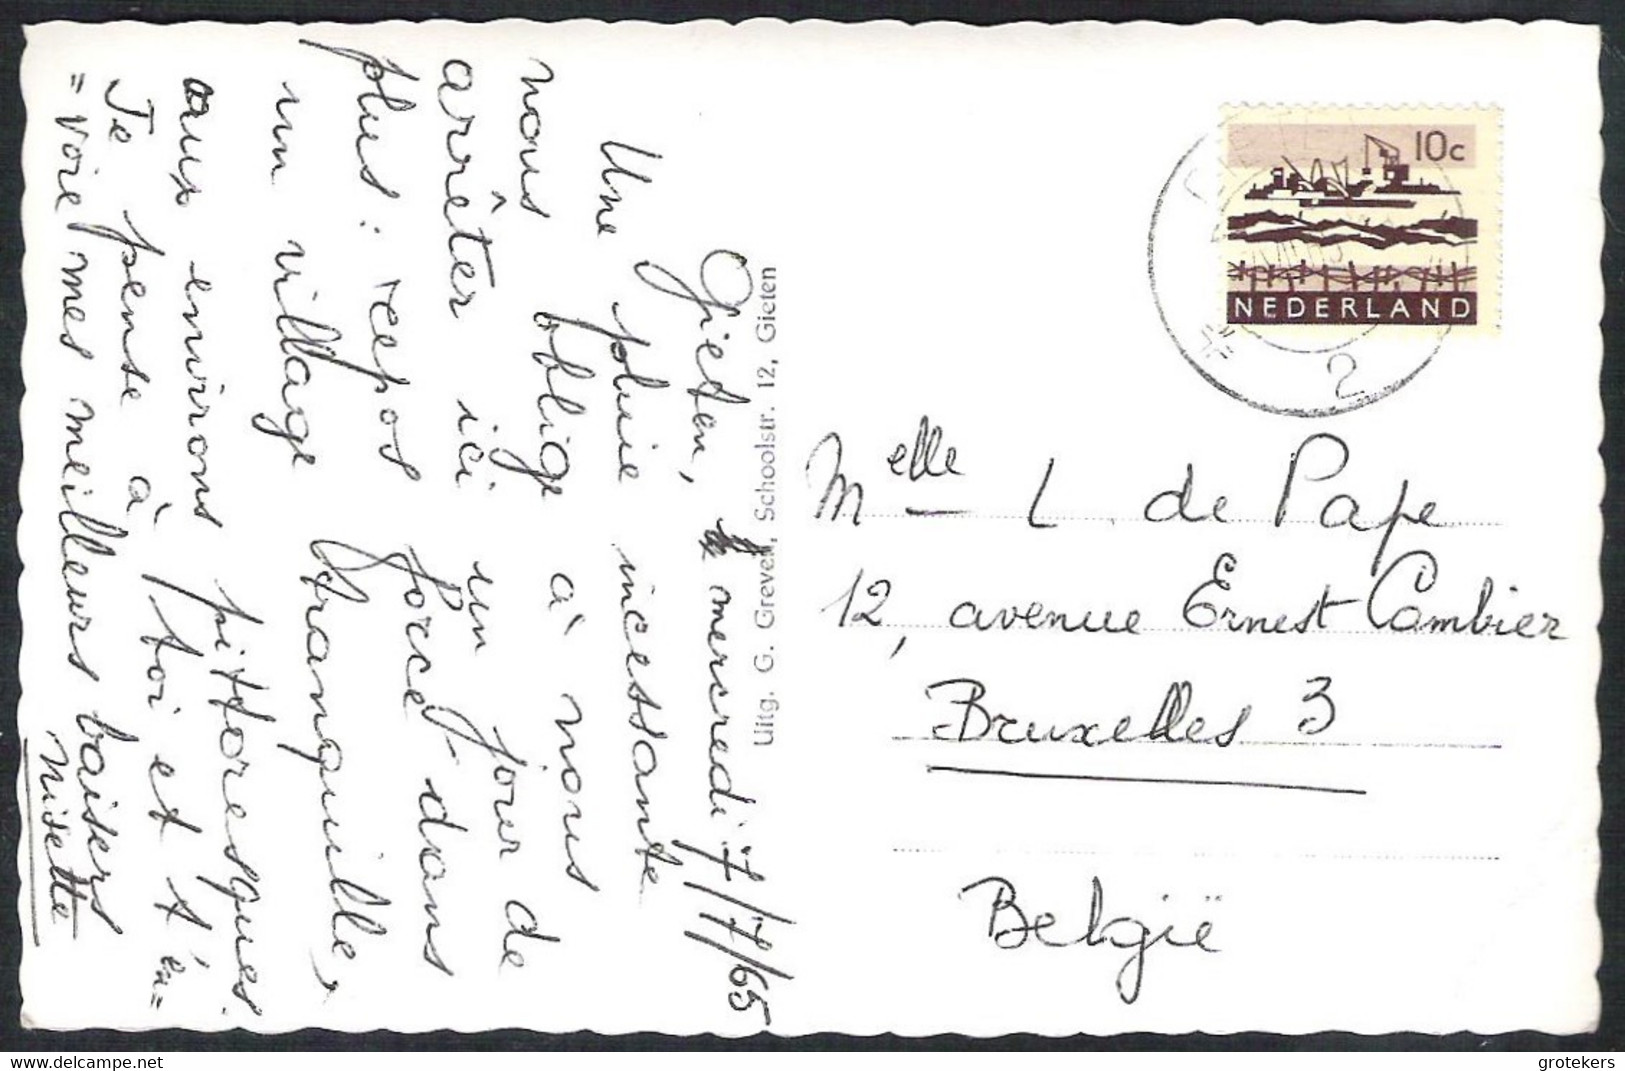 Gieten, mercredi 7/7/65
Une pluie incessante
nous oblige à nous
arrêter ici un jour de
plus : repos forcé dans
un village tranquille,
aux environs pittoresques
Je pense à toi et t'en=
=voie mes meilleurs baisers
Nisette
Uitg. G. Grevel, Schoolstr. 12, Gieten
10c
NEDERLAND
2
Melle L de Pape
12, avenue Ernest Cambier
Bruxelles 3
België
grotekers